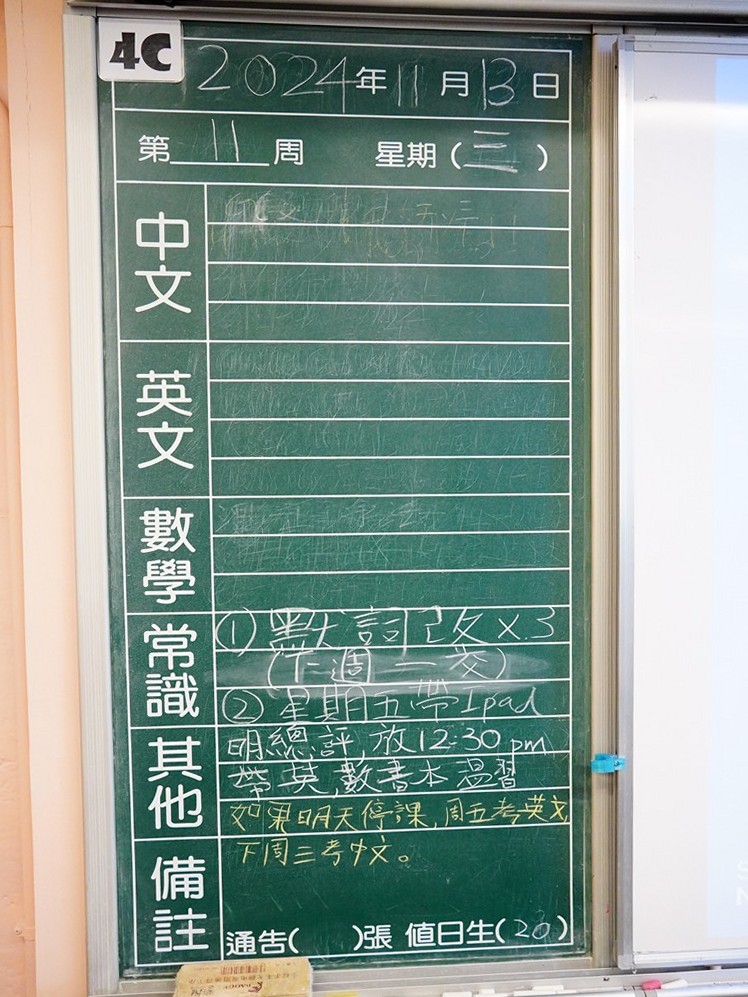 4C
2024年11月13日
第11周 星期(三)
中文
英文
數學
常識
①默詞改x3
(下週一交)
②星期五帶Ipad
其他
明總評,放12:30pm
帶英,數書本温習
如果明天停課,周五考英文,
下周三考中文。
備註
通告( )張 值日生(20)